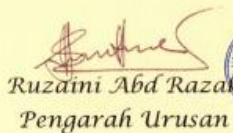 Ruzaini Abd Razak
Pengarah Urusan